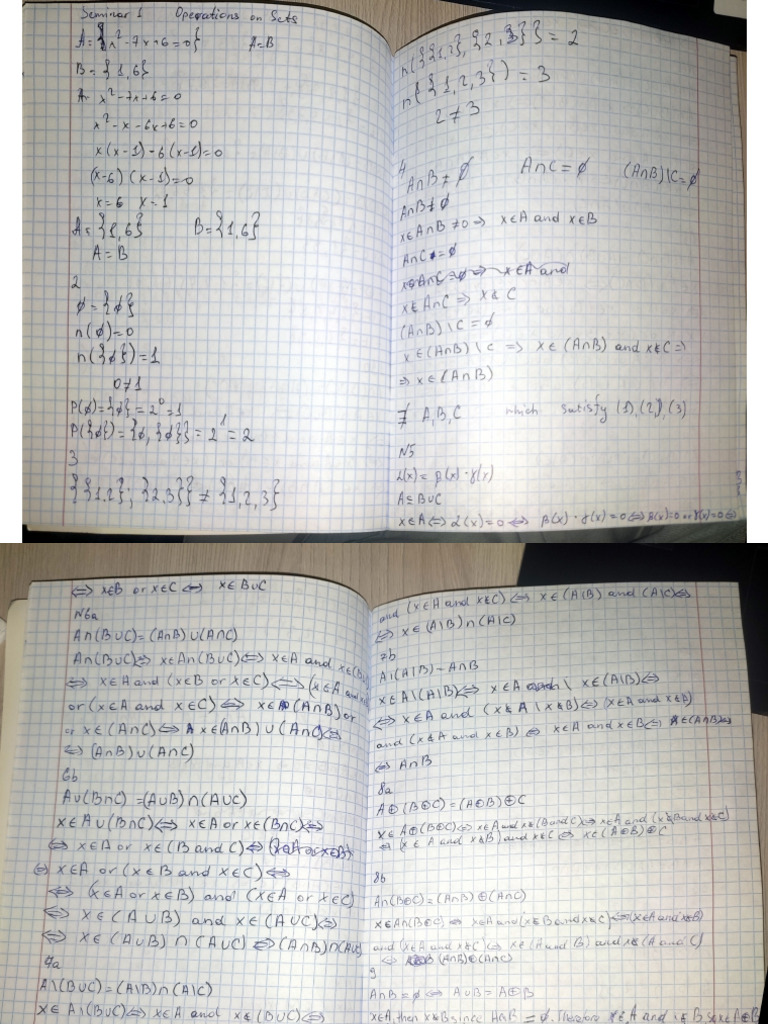 Seminar 1 Operations on Sets
A={x²-7x+6=0} A=B
B={1,6}
A= x²-7x+6=0
x²-x-6x+6=0
x(x-1)-6(x-1)=0
(x-6)(x-1)=0
x=6 x=1
A={1,6} B={1,6}
A=B
2
∅={∅}
n(∅)=0
n({∅})=1
0≠1
P(∅)={∅}=2⁰=1
P({∅})={∅,{∅}}=2¹=2
3
{{1.2};{2.3}}≠{1,2,3}
n({{1,2},{2,3}}=2
n({1,2,3})=3
2≠3
4
A∩B≠∅ A∩C=∅ (A∩B)\C=∅
A∩B≠∅
x∈A∩B≠0⇒ x∈A and x∈B
A∩C=∅
x∉A∩C⇒ x∉C
(A∩B)\C=∅
x∈(A∩B)\C ⇒ x∈(A∩B) and x∉C⇒
⇒x∈(A∩B)
∄ A,B,C which satisfy (1),(2),(3)
N5
α(x)=β(x)·γ(x)
A⊆B∪C
x∈A⇔α(x)=0⇔ β(x)·γ(x)=0⇔β(x)=0 or γ(x)=0⇔
⇔ x∈B or x∈C⇔ x∈B∪C
N6a
A∩(B∪C)=(A∩B)∪(A∩C)
A∩(B∪C)⇔ x∈A∩(B∪C)⇔ x∈A and
⇔ x∈A and (x∈B or x∈C)⇔(x∈A and
or (x∈A and x∈C)⇔ x∈(A∩B) or
x∈(A∩C)⇔ x∈(A∩B)∪(A∩C)⇔
⇔(A∩B)∪(A∩C)
6b
A∪(B∩C)=(A∪B)∩(A∪C)
x∈A∪(B∩C)⇔ x∈A or x∈(B∩C)⇔
⇔ x∈A or x∈(B and C)⇔
⇔ x∈A or (x∈B and x∈C)⇔
⇔ (x∈A or x∈B) and (x∈A or x∈C)
⇔ x∈(A∪B) and x∈(A∪C)⇔
⇔ x∈(A∪B)∩(A∪C)⇔(A∩B)∩(A∪
7a
A\(B∪C)=(A\B)∩(A\C)
x∈A\(B∪C)⇔ x∈A and x∉(B∪C)⇔
and (x∈A and x∉C)⇔ x∈(A\B) and (A\C)⇔
⇔ x∈(A\B)∩(A\C)
7b
A\(A\B)=A∩B
x∈A\(A\B)⇔ x∈A \ x∈(A\B)⇔
⇔ x∈A and (x∉A\x∉B)⇔(x∈A and x∈B)
and (x∉A and x∈B)⇔ x∈A and x∈B⇔ x∈(A∩B)⇔
⇔ A∩B
8a
A⊕(B⊕C)=(A⊕B)⊕C
x∈A⊕(B⊕C)⇔ x∈A and
⇔ (x∈A and x∉B) and x∈C⇔ x∈(A⊕B)⊕C
8b
A∩(B⊕C)=(A∩B)⊕(A∩C)
x∈A∩(B⊕C)⇔ x∈A and
and (x∈A and x∉C)⇔ x∈(A and B) and x∉(A and C)
⇔ (A∩B)⊕(A∩C)
9
A∩B=∅⇔ A∪B=A⊕B
x∈A, then x∉B since A∩B=∅. Therefore x∈A and